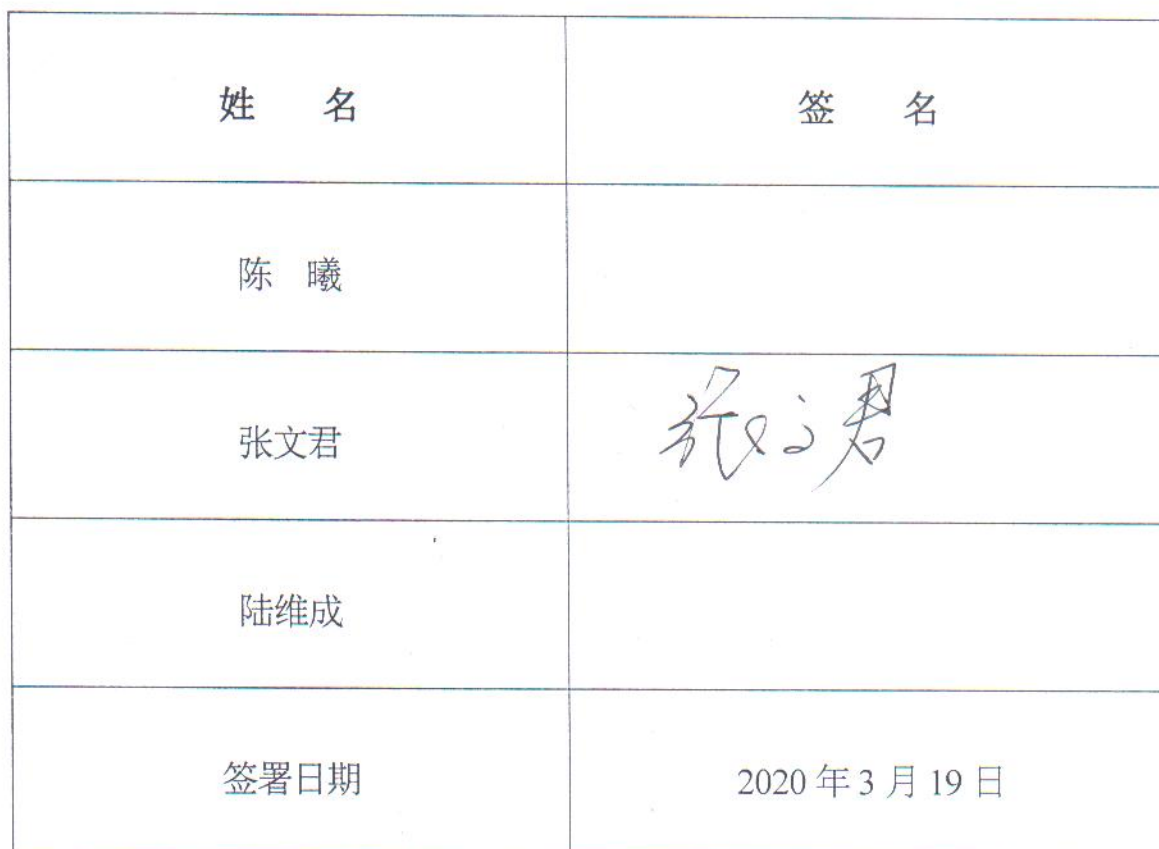 姓 名 签 名
陈 曦
张文君 张文君
陆维成
签署日期 2020年3月19日